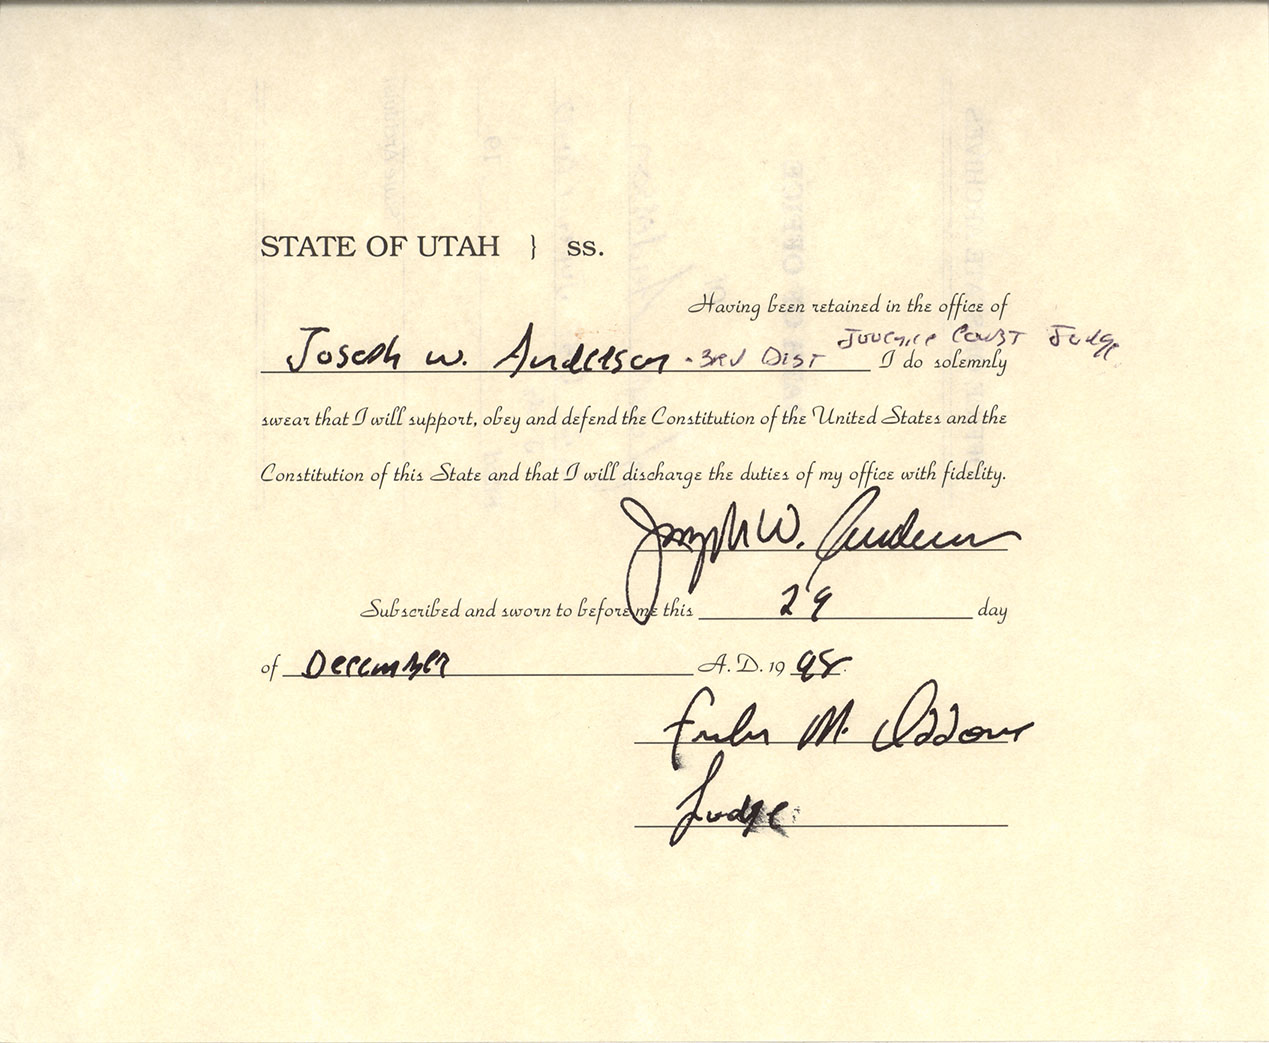 STATE OF UTAH } ss.
Having been retained in the office of
Joseph W. Anderson - 3rd Dist Juvenile Court Judge I do solemnly
swear that I will support, obey and defend the Constitution of the United States and the
Constitution of this State and that I will discharge the duties of my office with fidelity.
Joseph W. Anderson
Subscribed and sworn to before me this 29 day
of December A. D. 19 98
M.
Judge